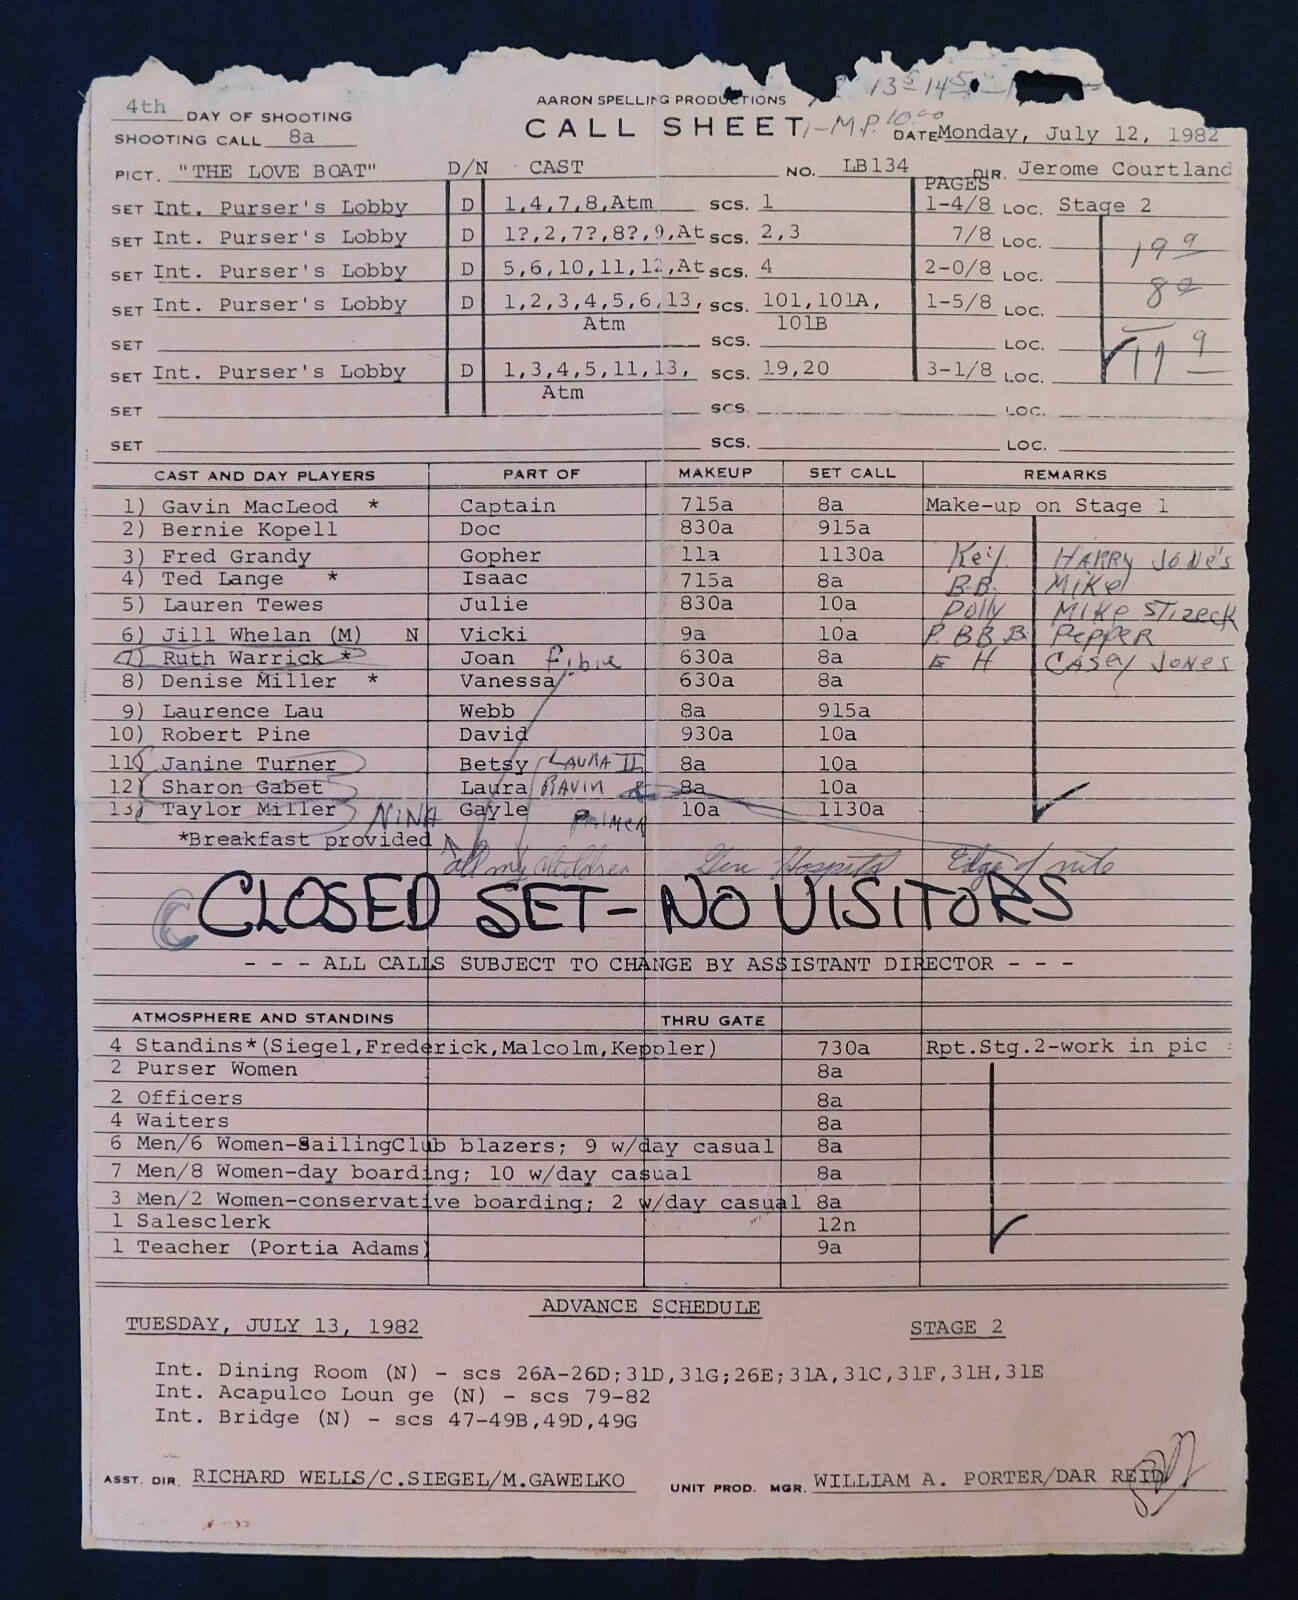 13⁵ 14⁵
AARON SPELLING PRODUCTIONS
4th DAY OF SHOOTING
CALL SHEET
1-M.P. 10:00
DATE Monday, July 12, 1982
SHOOTING CALL 8a
PICT. "THE LOVE BOAT" D/N CAST NO. LB134 DIR. Jerome Courtland
PAGES
SET Int. Purser's Lobby D 1,4,7,8,Atm SCS. 1 1-4/8 LOC. Stage 2
SET Int. Purser's Lobby D 1?,2,7?,8?,9,At SCS. 2,3 7/8 LOC. 19 9
SET Int. Purser's Lobby D 5,6,10,11,12,At SCS. 4 2-0/8 LOC. 8
SET Int. Purser's Lobby D 1,2,3,4,5,6,13, SCS. 101,101A, 1-5/8 LOC.
Atm 101B
SET SCS. LOC. 11 9
SET Int. Purser's Lobby D 1,3,4,5,11,13, SCS. 19,20 3-1/8 LOC.
Atm
SET SCS. LOC.
SET SCS. LOC.
CAST AND DAY PLAYERS PART OF MAKEUP SET CALL REMARKS
1) Gavin MacLeod * Captain 715a 8a Make-up on Stage 1
2) Bernie Kopell Doc 830a 915a
3) Fred Grandy Gopher 11a 1130a HARRY JONE'S
4) Ted Lange * Isaac 715a 8a B-B. MIKE
5) Lauren Tewes Julie 830a 10a Dolly MIKE STIZECK
6) Jill Whelan (M) N Vicki 9a 10a P. BB B PEPPER
7) Ruth Warrick * Joan 630a 8a E H CASEY JONES
8) Denise Miller * Vanessa 630a 8a
9) Laurence Lau Webb 8a 915a
10) Robert Pine David 930a 10a
11) Janine Turner Betsy LAURA II 8a 10a
12) Sharon Gabet Laura RAVIN 8a 10a
13) Taylor Miller NINA Gayle PALMER 10a 1130a
*Breakfast provided
all my children Gene Hospital Edge of nite
CLOSED SET-NO VISITORS
- - - ALL CALLS SUBJECT TO CHANGE BY ASSISTANT DIRECTOR - - -
ATMOSPHERE AND STANDINS THRU GATE
4 Standins*(Siegel,Frederick,Malcolm,Keppler) 730a Rpt.Stg.2-work in pic
2 Purser Women 8a
2 Officers 8a
4 Waiters 8a
6 Men/6 Women-SailingClub blazers; 9 w/day casual 8a
7 Men/8 Women-day boarding; 10 w/day casual 8a
3 Men/2 Women-conservative boarding; 2 w/day casual 8a
1 Salesclerk 12n
1 Teacher (Portia Adams) 9a
ADVANCE SCHEDULE
TUESDAY, JULY 13, 1982 STAGE 2
Int. Dining Room (N) - scs 26A-26D;31D,31G;26E;31A,31C,31F,31H,31E
Int. Acapulco Loun ge (N) - scs 79-82
Int. Bridge (N) - scs 47-49B,49D,49G
ASST. DIR. RICHARD WELLS/C.SIEGEL/M.GAWELKO UNIT PROD. MGR. WILLIAM A. PORTER/DAR REID